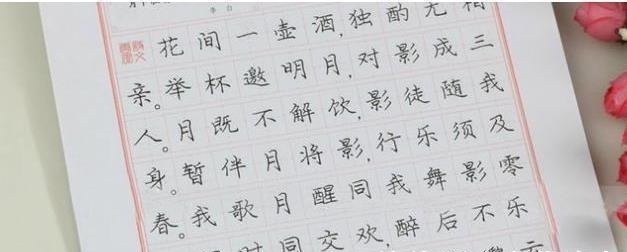 李白
花间一壶酒,独酌无相
亲。举杯邀明月,对影成三
人。月既不解饮,影徒随我
身。暂伴月将影,行乐须及
春。我歌月醒同我舞影零
时同交欢,醉后不乐